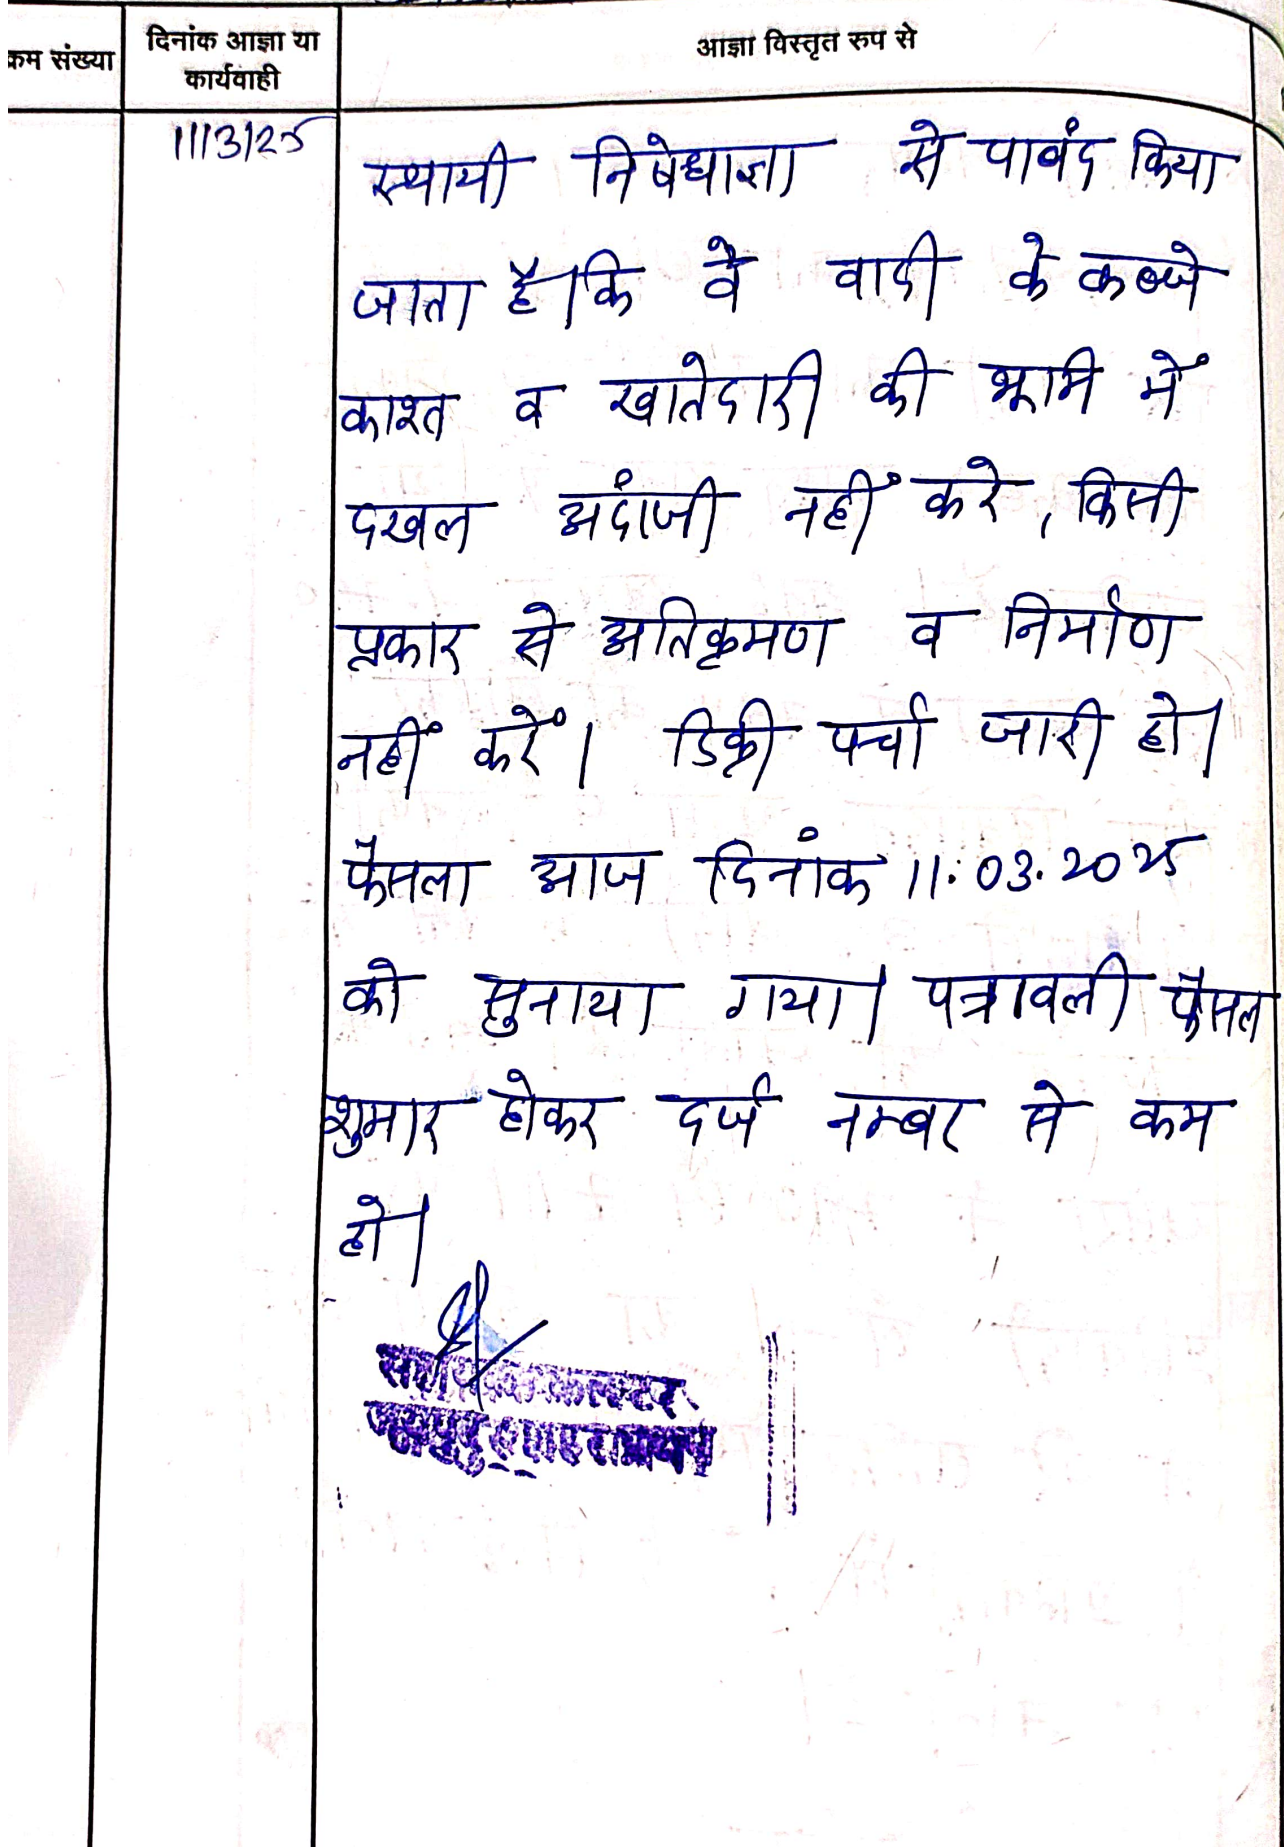 क्रम संख्या
दिनांक आज्ञा या
कार्यवाही
आज्ञा विस्तृत रुप से
11/3/25
स्थायी निषेधाज्ञा से पाबंद किया
जाता है। कि वे वादी के कब्जे
काश्त व खातेदारी की भूमि में
दखल अदांजी नहीं करे, किसी
प्रकार से अतिक्रमण व निर्माण
नहीं करें। डिक्री पर्चा जारी हो।
फैसला आज दिनांक 11.03.2025
को सुनाया गया। पत्रावली फैसल
शुमार होकर दर्ज नम्बर से कम
हो।